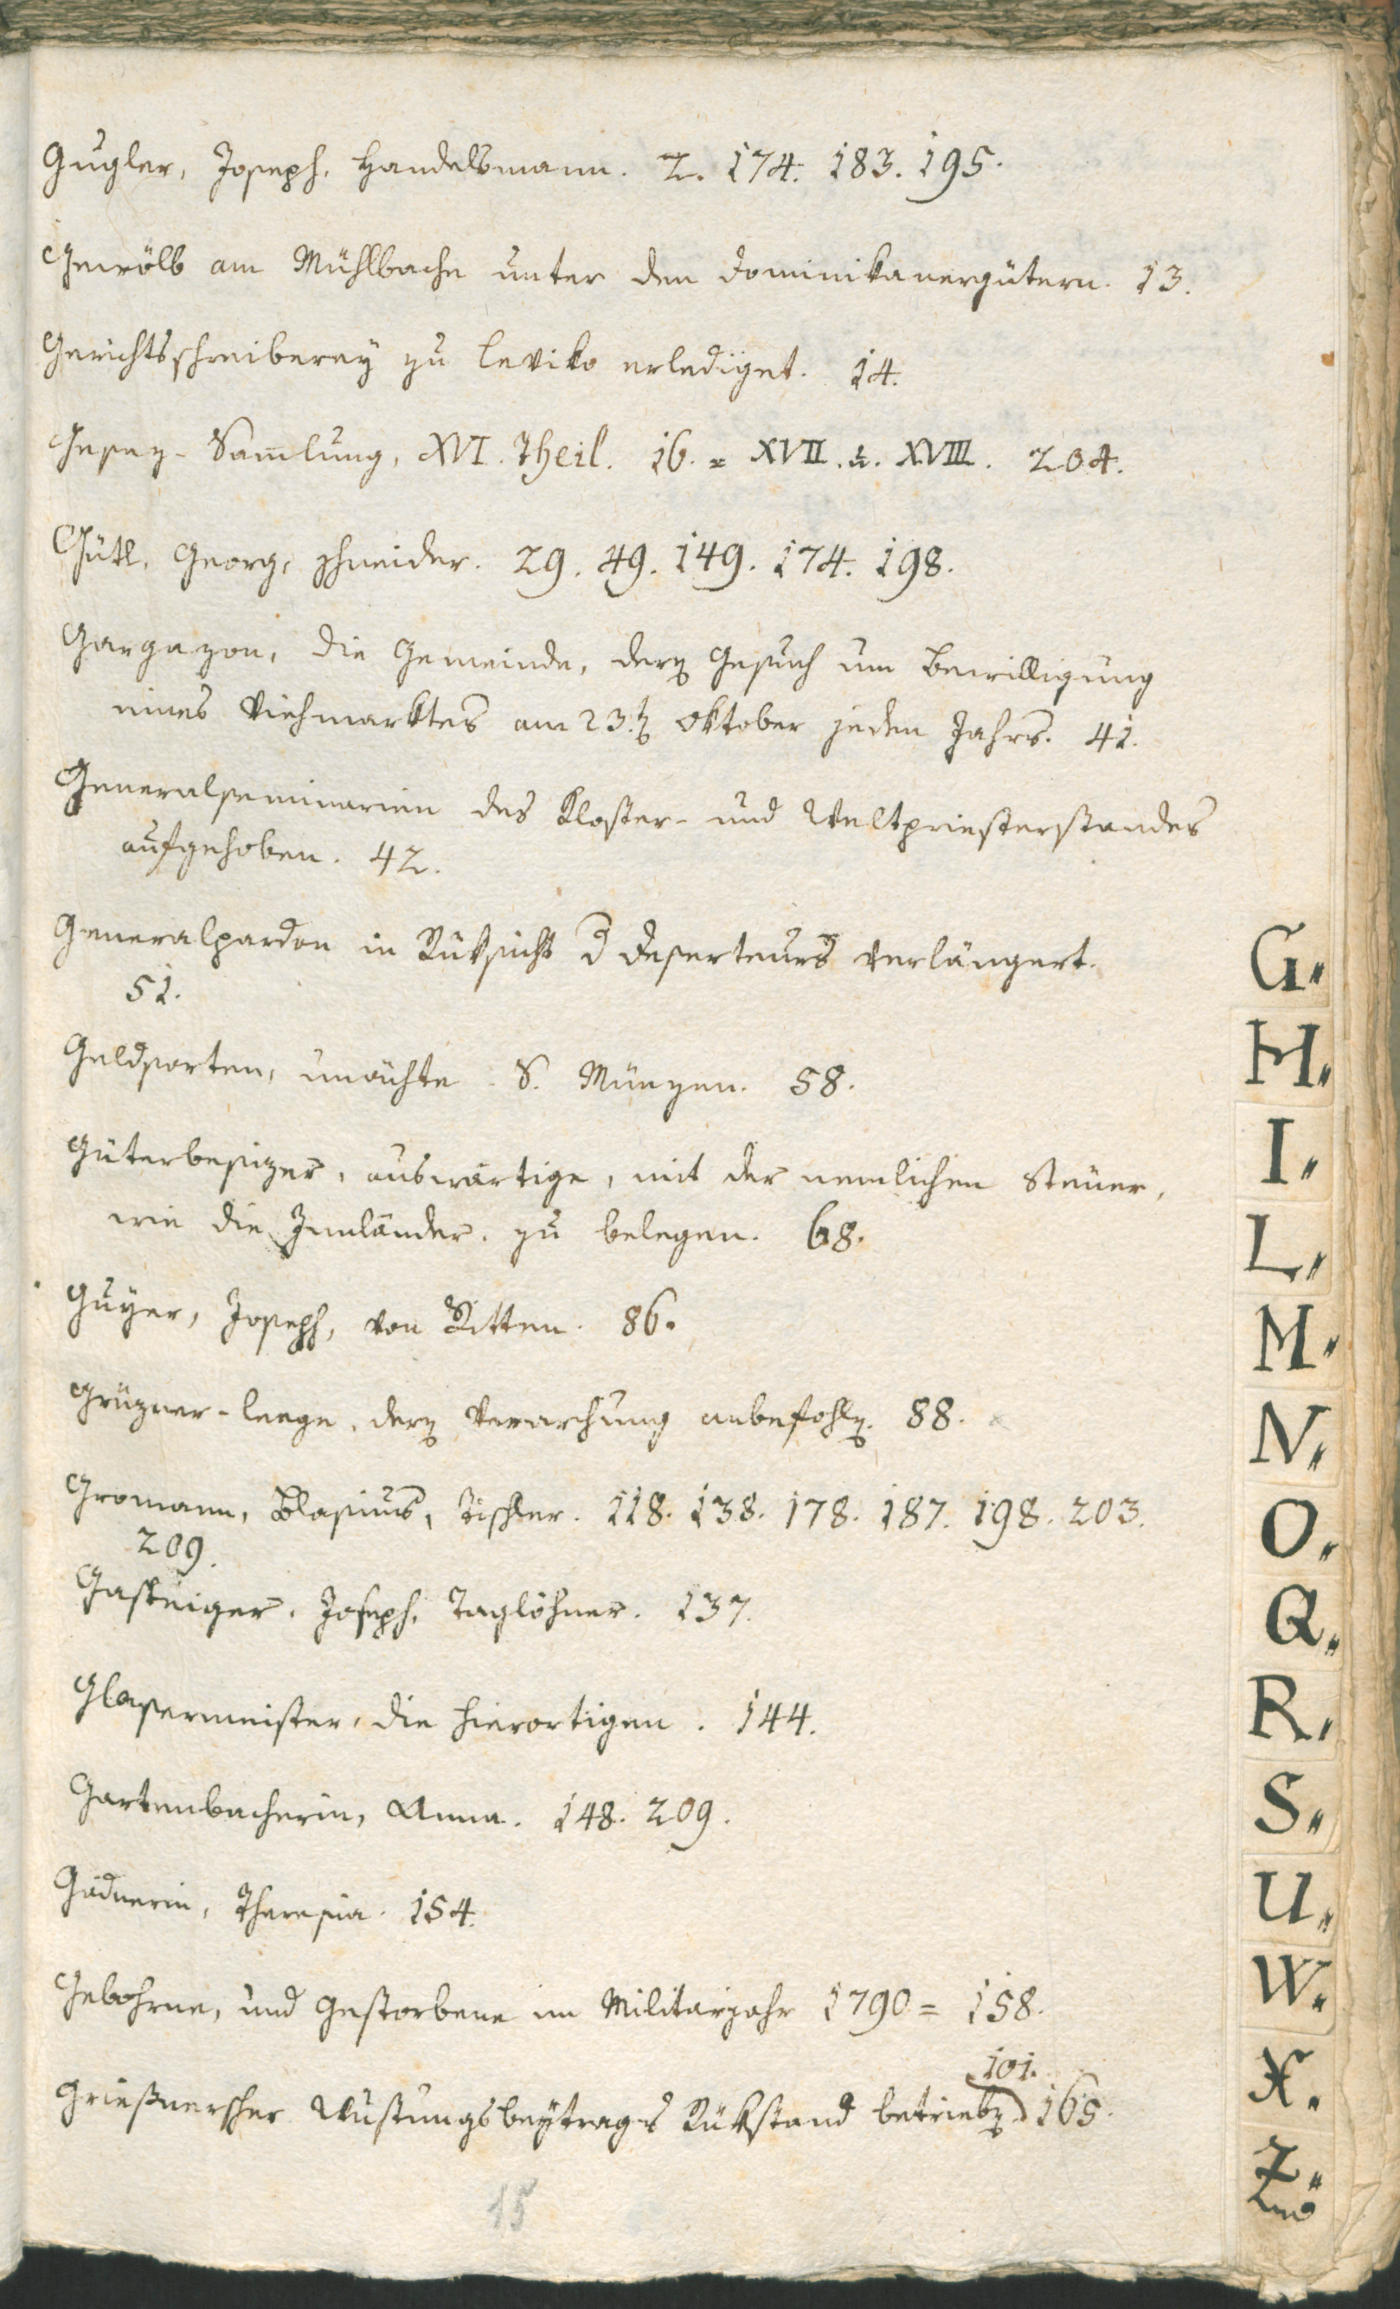 Gugler, Joseph, Handelsmann. 2. 174. 183. 195.
Gewölb am Mühlbache unter den Dominikanergütern. 13.
Gerichtsschreiberey zu Leviko erlediget. 14.
Gesez-Sam̅lung, XVI. Theil. 16. = XVII. u. XVIII. 204.
Gütl, Georg, Schneider. 29. 49. 149. 174. 198.
Gargazon, die Gemeinde, deren Gesuch um Bewilligung
eines Viehmarktes am 23.ten Oktober jeden Jahrs. 41.
Generalseminarien des Kloster- und Weltpriesterstandes
aufgehoben. 42.
Generalpardon in Rüksicht d Deserteurs verlängert.
51.
Geldsorten, unächte. S. Münzen. 58.
Güterbesizer, auswärtige, mit der nemlichen Steuer,
wie die Innländer, zu belegen. 68.
Guyer, Joseph, von Ritten. 86.
Grüzner-Leege, deren Verarchung anbefohlen. 88.
Gromann, Blasius, Tischler. 118. 138. 178. 187. 198. 203.
209.
Gasteiger, Joseph, Taglöhner. 137.
Glasermeister, die hierortigen. 144.
Gartenbacherin, Anna. 148. 209.
Gädnerin, Theresia. 154.
Gebohrne, und Gestorbene im Militärjahr 1790 = 158.
101.
Grießnerscher Wustungsbeytrags Rükstand betrieben. 165.
15
G.
H.
I.
L.
M.
N.
O.
Q.
R.
S.
U.
W.
X.
Z.